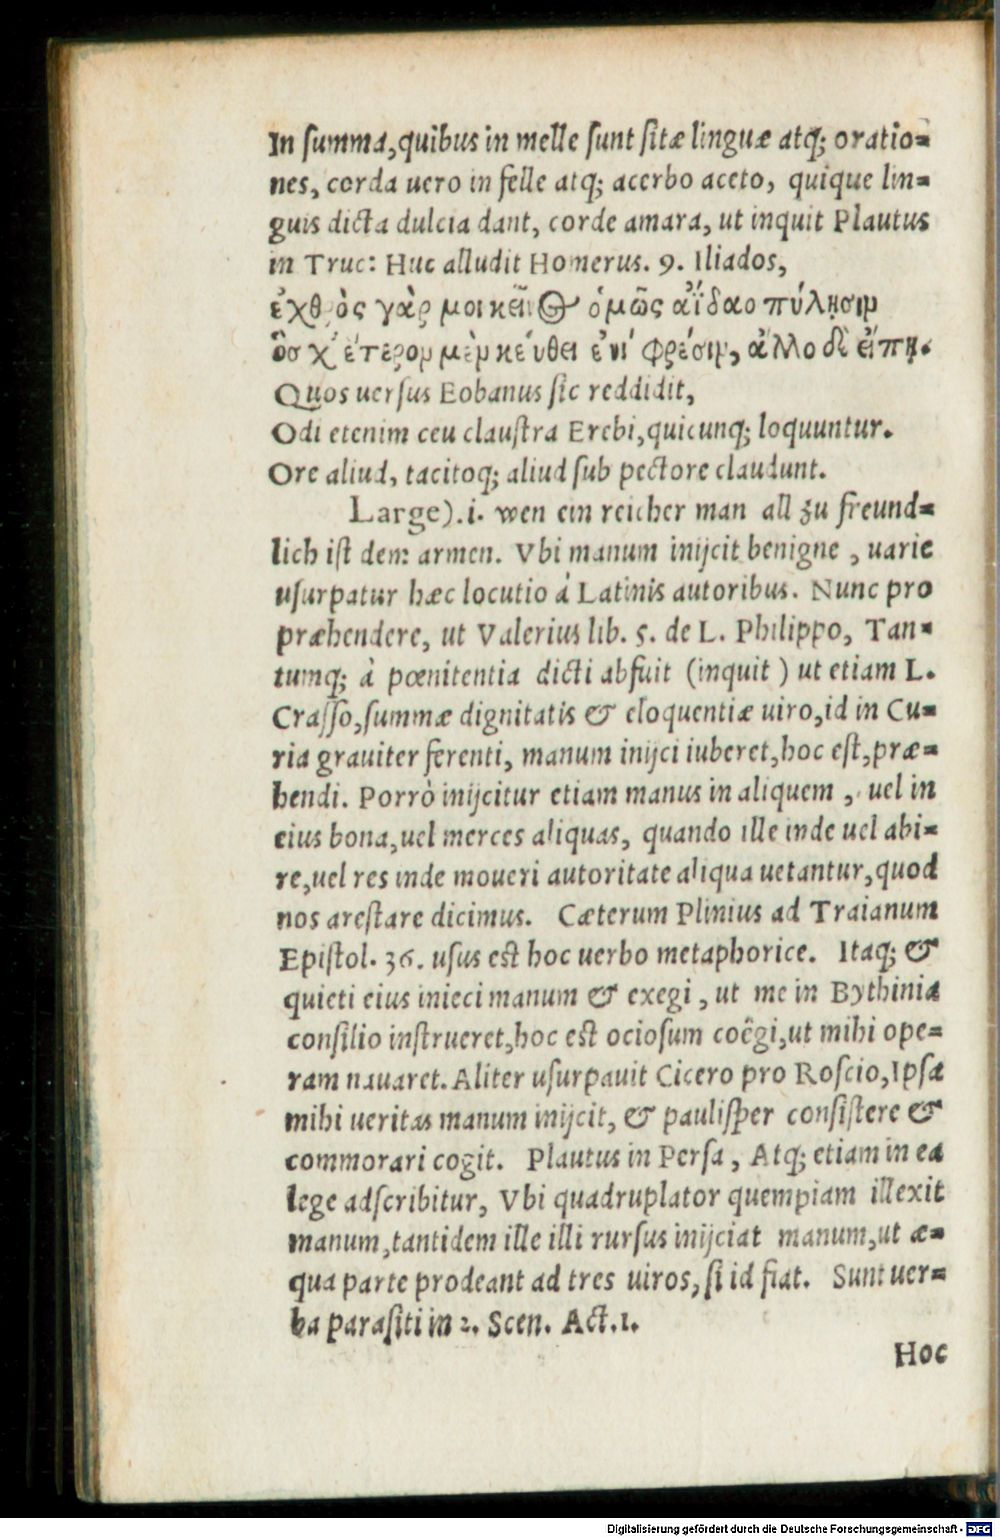 In summa, quibus in melle sunt sitæ linguæ atq; oratio=
nes, corda uero in felle atq; acerbo aceto, quique lin=
guis dicta dulcia dant, corde amara, ut inquit Plautus
in Truc: Huc alludit Homerus. 9. Iliados,
ἐχθρὸς γάρ μοι κεῖνος ὁμῶς ἀΐδαο πύλῃσιν
ὅς χ' ἕτερον μὲν κεύθει ἐνὶ φρέσιν, ἄλλο δὲ εἴπῃ.
Quos uersus Eobanus sic reddidit,
Odi etenim ceu claustra Erebi, quicunq; loquuntur.
Ore aliud, tacitoq; aliud sub pectore claudunt.
Large).i. wen ein reicher man all zu freund=
lich ist dem armen. Vbi manum inijcit benigne, uarie
usurpatur hæc locutio à Latinis autoribus. Nunc pro
præhendere, ut Valerius lib. 5. de L. Philippo, Tan=
tumq; à pœnitentia dicti abfuit (inquit) ut etiam L.
Crasso, summæ dignitatis & eloquentiæ uiro, id in Cu=
ria grauiter ferenti, manum inijci iuberet, hoc est, præ=
hendi. Porrò inijcitur etiam manus in aliquem, uel in
eius bona, uel merces aliquas, quando ille inde uel abi=
re, uel res inde moueri autoritate aliqua uetantur, quod
nos arestare dicimus. Cæterum Plinius ad Traianum
Epistol. 36. usus est hoc uerbo metaphorice. Itaq; &
quieti eius inieci manum & exegi, ut me in Bythinia
consilio instrueret, hoc est ociosum coêgi, ut mihi ope=
ram nauaret. Aliter usurpauit Cicero pro Roscio, Ipsa
mihi ueritas manum inijcit, & paulisper consistere &
commorari cogit. Plautus in Persa, Atq; etiam in ea
lege adscribitur, Vbi quadruplator quempiam illexit
manum, tantidem ille illi rursus inijciat manum, ut æ=
qua parte prodeant ad tres uiros, si id fiat. Sunt uer=
ba parasiti in 2. Scen. Act. 1.
Hoc
Digitalisierung gefördert durch die Deutsche Forschungsgemeinschaft - DFG